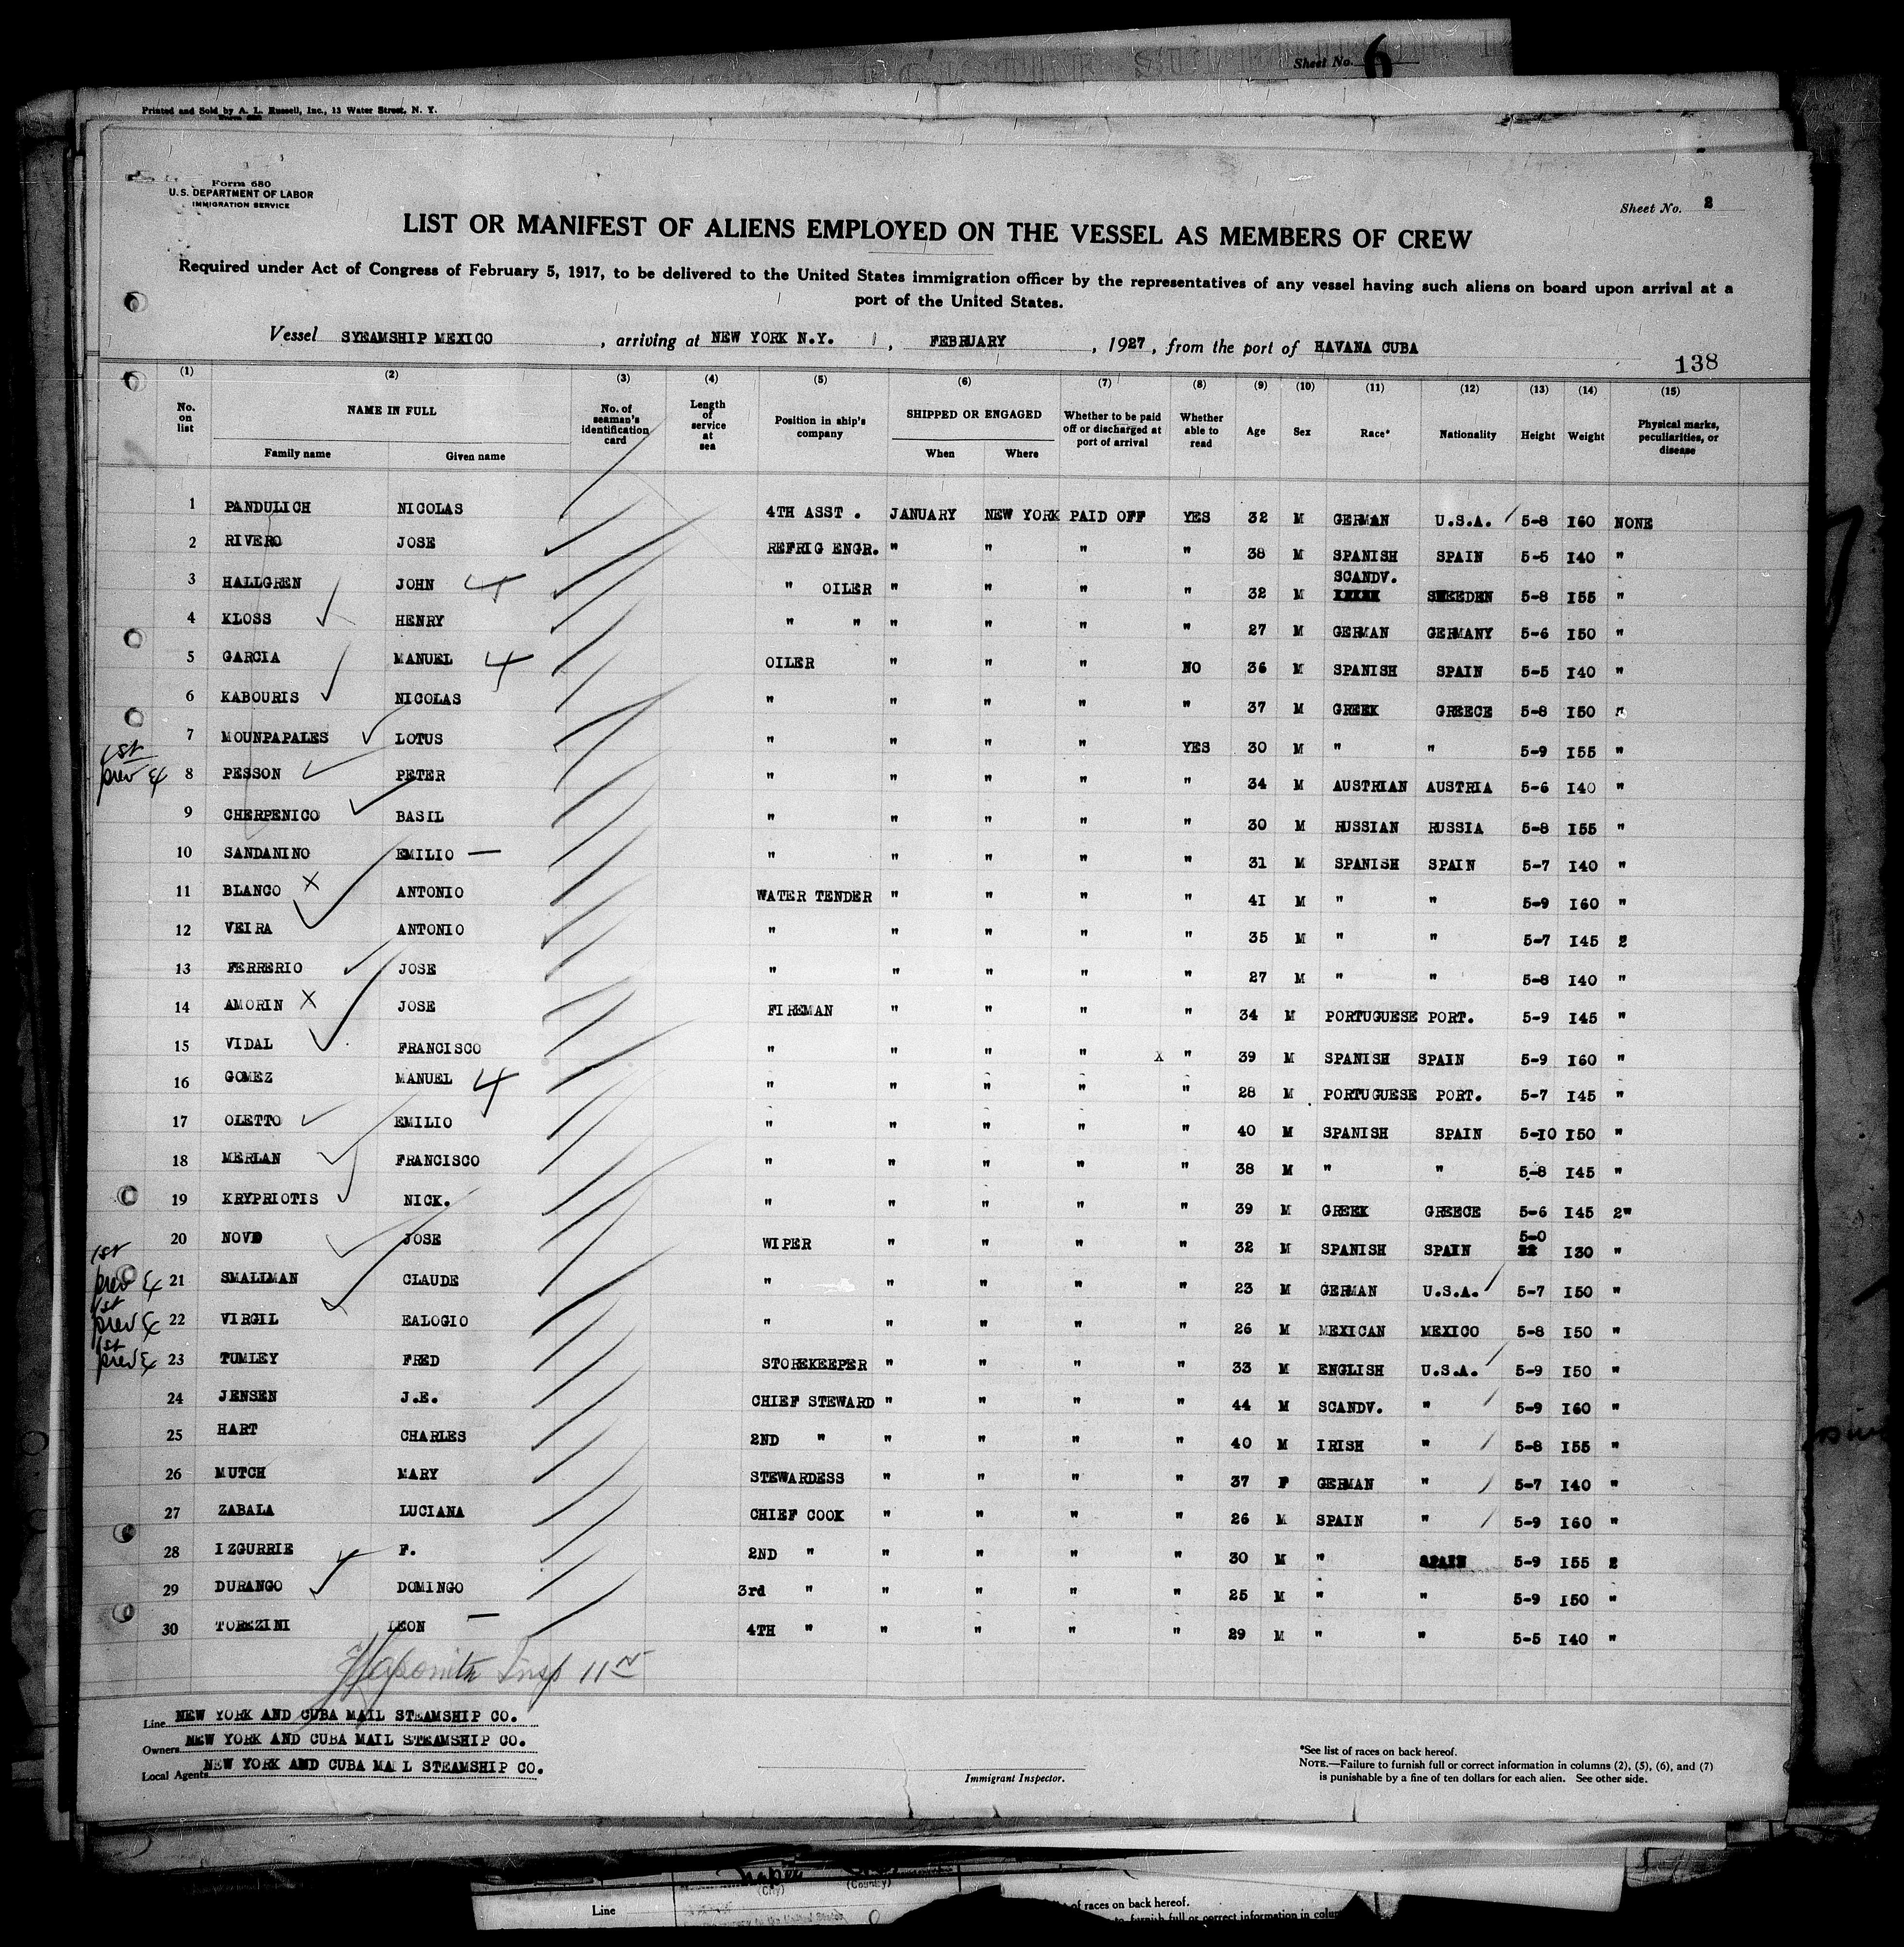 Sheet No. 6
Printed and Sold by A. L. Russell, Inc., 13 Water Street, N. Y.
Form 680
U.S. DEPARTMENT OF LABOR
IMMIGRATION SERVICE
Sheet No. 2
LIST OR MANIFEST OF ALIENS EMPLOYED ON THE VESSEL AS MEMBERS OF CREW
Required under Act of Congress of February 5, 1917, to be delivered to the United States immigration officer by the representatives of any vessel having such aliens on board upon arrival at a
port of the United States.
Vessel SYEAMSHIP MEXICO, arriving at NEW YORK N.Y., FEBRUARY, 1927, from the port of HAVANA CUBA
138
(1) (2) (3) (4) (5) (6) (7) (8) (9) (10) (11) (12) (13) (14) (15)
No. on list NAME IN FULL Family name Given name No. of seaman's identification card Length of service at sea Position in ship's company SHIPPED OR ENGAGED When Where Whether to be paid off or discharged at port of arrival Whether able to read Age Sex Race* Nationality Height Weight Physical marks, peculiarities, or disease
1 PANDULICH NICOLAS 4TH ASST . JANUARY NEW YORK PAID OFF YES 32 M GERMAN U.S.A. 5-8 I60 NONE
2 RIVERO JOSE REFRIG ENGR. " " " " 38 M SPANISH SPAIN 5-5 I40 "
3 HALLGREN JOHN 4 " OILER " " " " 32 M SCANDV. SWEEDEN 5-8 I55 "
4 KLOSS HENRY " " " " " " 27 M GERMAN GERMANY 5-6 I50 "
5 GARCIA MANUEL 4 OILER " " " NO 36 M SPANISH SPAIN 5-5 I40 "
6 KABOURIS NICOLAS " " " " " 37 M GREEK GREECE 5-8 I50 "
7 MOUNPAPALES LOTUS " " " " YES 30 M " " 5-9 I55 "
1st prev 8 PESSON PETER " " " " " 34 M AUSTRIAN AUSTRIA 5-6 I40 "
9 CHERPENICO BASIL " " " " " 30 M RUSSIAN RUSSIA 5-8 I55 "
10 SANDANINO EMILIO — " " " " " 31 M SPANISH SPAIN 5-7 I40 "
11 BLANCO X ANTONIO WATER TENDER " " " " 4I M " " 5-9 I60 "
12 VEIRA ANTONIO " " " " " 35 M " " 5-7 I45 2
13 FERRERIO JOSE " " " " " 27 M " " 5-8 I40 "
14 AMORIN X JOSE FIREMAN " " " " 34 M PORTUGUESE PORT. 5-9 I45 "
15 VIDAL FRANCISCO " " " " X " 39 M SPANISH SPAIN 5-9 I60 "
16 GOMEZ MANUEL 4 " " " " " 28 M PORTUGUESE PORT. 5-7 I45 "
17 OLETTO EMILIO " " " " " 40 M SPANISH SPAIN 5-I0 I50 "
18 MERLAN FRANCISCO " " " " " 38 M " " 5-8 I45 "
19 KRYPRIOTIS NICK. " " " " " 39 M GREEK GREECE 5-6 I45 2"
20 NOVO JOSE WIPER " " " " 32 M SPANISH SPAIN 5-0 I30 "
1st prev 21 SMALLMAN CLAUDE " " " " " 23 M GERMAN U.S.A. 5-7 I50 "
1st prev 22 VIRGIL EALOGIO " " " " " 26 M MEXICAN MEXICO 5-8 I50 "
1st prev 23 TUMLEY FRED STOREKEEPER " " " " 33 M ENGLISH U.S.A. 5-9 I50 "
24 JENSEN J.E. CHIEF STEWARD " " " " 44 M SCANDV. " 5-9 I60 "
25 HART CHARLES 2ND " " " " " 40 M IRISH " 5-8 I55 "
26 MUTCH MARY STEWARDESS " " " " 37 F GERMAN " 5-7 I40 "
27 ZABALA LUCIANA CHIEF COOK " " " " 26 M SPAIN " 5-9 I60 "
28 IZGURRIE F. 2ND " " " " " 30 M " SPAIN 5-9 I55 2
29 DURANGO DOMINGO 3rd " " " " " 25 M " " 5-9 I50 "
30 TOREZINI LEON — 4TH " " " " " 29 M " " 5-5 I40 "
Insp 11
Line NEW YORK AND CUBA MAIL STEAMSHIP CO.
Owners NEW YORK AND CUBA MAIL STEAMSHIP CO.
Local Agents NEW YORK AND CUBA MAIL STEAMSHIP CO.
Immigrant Inspector.
*See list of races on back hereof.
NOTE.—Failure to furnish full or correct information in columns (2), (5), (6), and (7)
is punishable by a fine of ten dollars for each alien. See other side.
(City) (Country)
Line
of races on back hereof.
to furnish full or correct information in colum